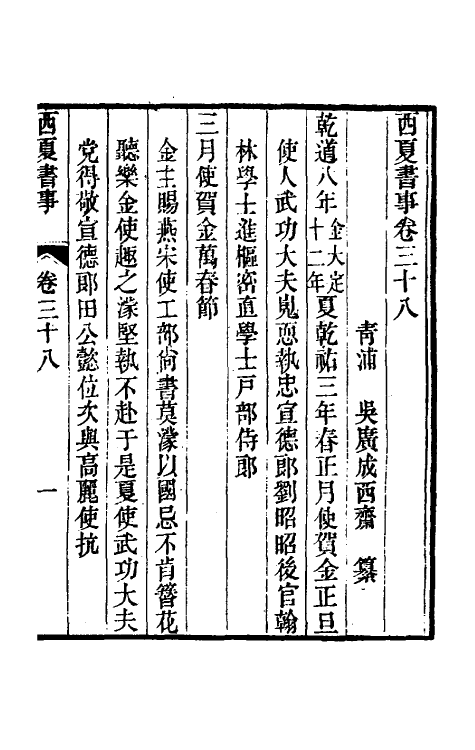 西夏書事卷三十八
青浦 吳廣成西齋 纂
乾道八年金大定十二年夏乾祐三年春正月使賀金正旦
使人武功大夫嵬恧執忠宣德郎劉昭昭後官翰
林學士進樞密直學士戸部侍郎
三月使賀金萬春節
金主賜燕宋使工部尚書莫濛以國忌不肯簪花
聽樂金使趣之濛堅執不赴于是夏使武功大夫
党得敬宣德郎田公懿位次與高麗使抗
西夏書事 卷三十八 一